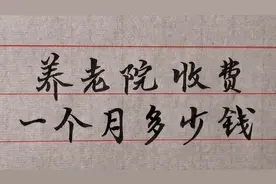 养老院收费
一个月多少钱